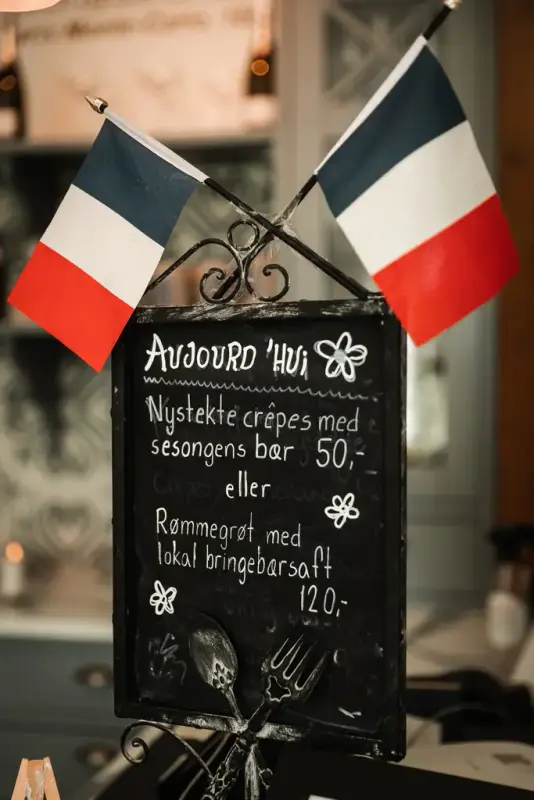 AUJOURD 'HUI
Nystekte crêpes med
sesongens bær 50,-
eller
Rømmegrøt med
lokal bringebærsaft
120,-